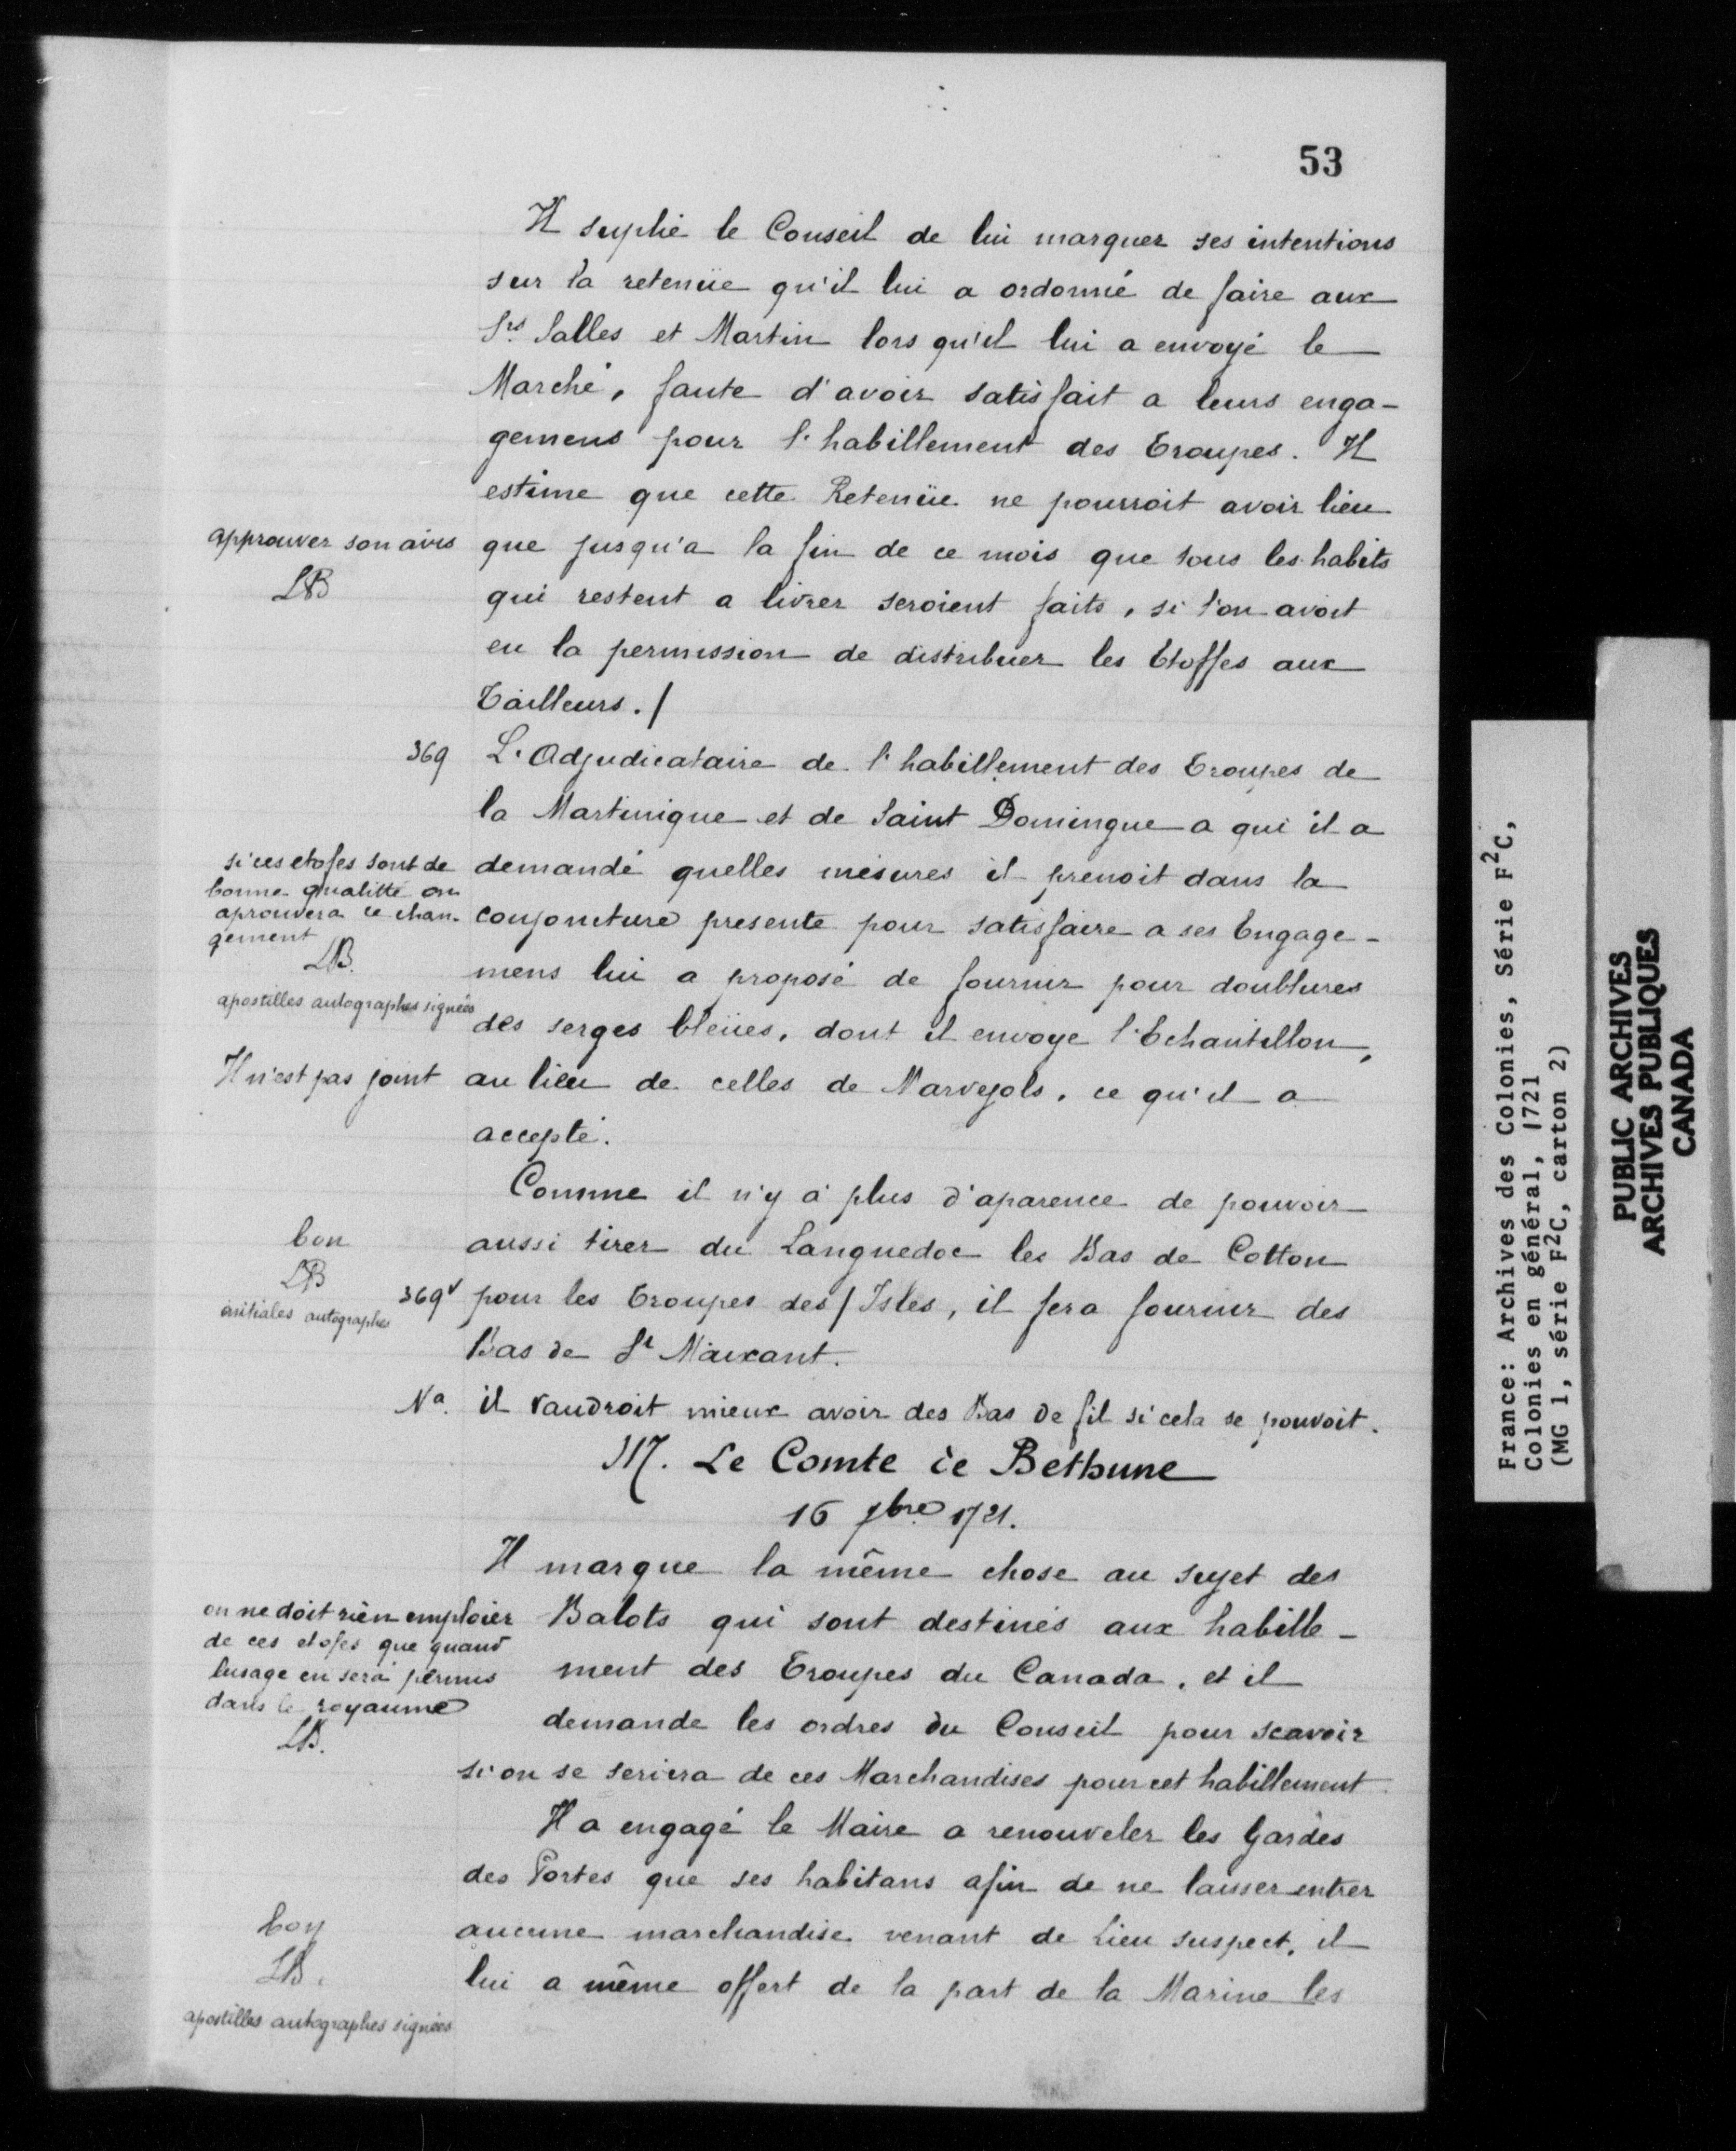 53
Il suplie le Conseil de lui marquer ses intentions
sur la retenüe qu'il lui a ordonné de faire aux
Srs Salles et Martin lors qu'il lui a envoyé le
Marché, faute d'avoir satisfait a leurs enga-
gemens pour l'habillement des Troupes. Il
estime que cette Retenüe ne pourroit avoir lieu
approuver son avis
LB
que jusqu'a la fin de ce mois que tous les habits
qui restent a livrer seroient faits, si l'on avoit
eu la permission de distribuer les Etoffes aux
Tailleurs./
369 L'Adjudicataire de l'habillement des Troupes de
la Martinique et de Saint Domingue a qui il a
si ces etofes sont de
bonne qualitté on
aprouvera ce chan-
gement
LB.
apostilles autographes signées
demandé quelles mesures il prenoit dans la
conjoncture presente pour satisfaire a ses Engage-
mens lui a proposé de fournir pour doublures
des serges bleües, dont il envoye l'Echantillon,
Il n'est pas joint
au lieu de celles de Marvejols, ce qu'il a
accepté.
Comme il n'y a plus d'aparence de pouvoir
bon
LB
initiales autographes
aussi tirer du Languedoc les Bas de Cotton
369v pour les Troupes des / Isles, il fera fournir des
Bas de St Maixant.
Na. il vaudroit mieux avoir des Bas de fil si cela se pouvoit.
M. Le Comte de Bethune
16 7bre 1721.
Il marque la même chose au sujet des
on ne doit rien emploier
de ces etofes que quand
lusage en sera permis
dans le royaume
LB.
Balots qui sont destinés aux habille-
ment des Troupes du Canada, et il
demande les ordres du Conseil pour scavoir
si on se servira de ces Marchandises pour cet habillement
Il a engagé le Maire a renouveler les Gardes
des Portes que ses habitans afin de ne laisser entrer
bon
LB.
apostilles autographes signées
aucune marchandise venant de Lieu suspect, il
lui a même offert de la part de la Marine les
France: Archives des Colonies, Série F²C,
Colonies en général, 1721
(MG 1, série F²C, carton 2)
PUBLIC ARCHIVES
ARCHIVES PUBLIQUES
CANADA